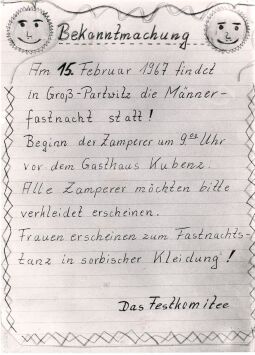 Bekanntmachung
Am 15. Februar 1967 findet
in Groß-Partwitz die Männer-
fastnacht statt!
Beginn der Zamperer um 9.00 Uhr
vor dem Gasthaus Kubenz.
Alle Zamperer möchten bitte
verkleidet erscheinen.
Frauen erscheinen zum Fastnachts-
tanz in sorbischer Kleidung!
Das Festkomitee